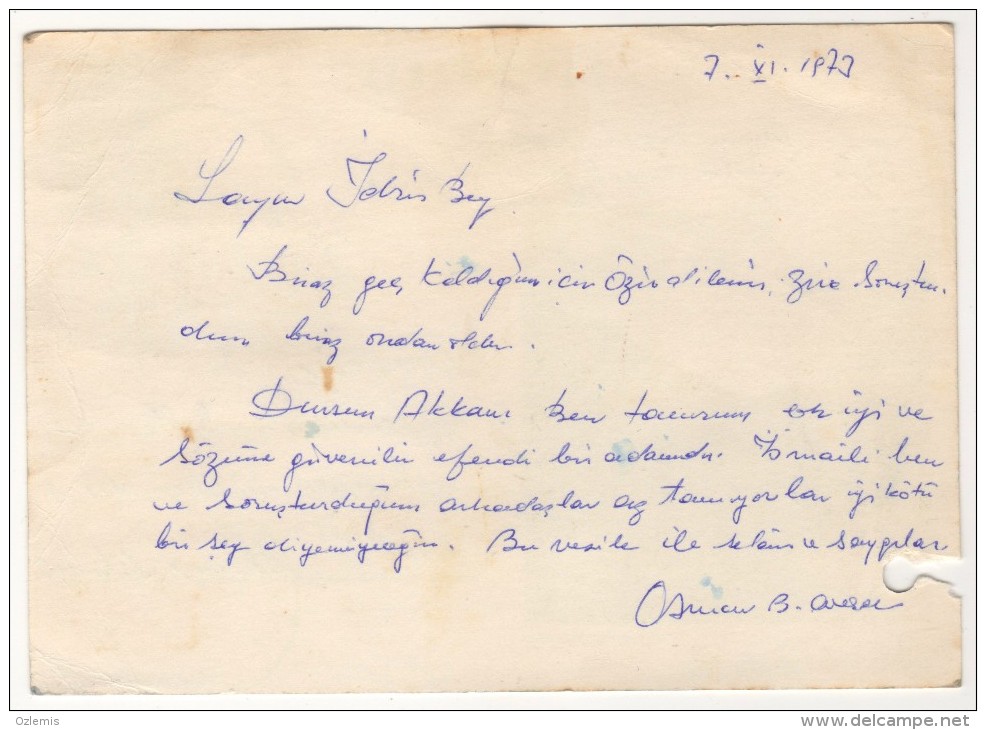 7. XI. 1973
Sayın İdris Bey
Biraz geç kaldığım için özür dilerim, zira soruştur-
dum biraz ondan oldu.
Dursun Akkanı ben tanırım çok iyi ve
sözüne güvenilir efendi bir adamdır. İsmaili ben
ve soruşturduğum arkadaşlar az tanıyorlar iyi kötü
bir şey diyemiyeceğim. Bu vesile ile selâm ve saygılar
Osman B.
Ozlemis
www.delcampe.net